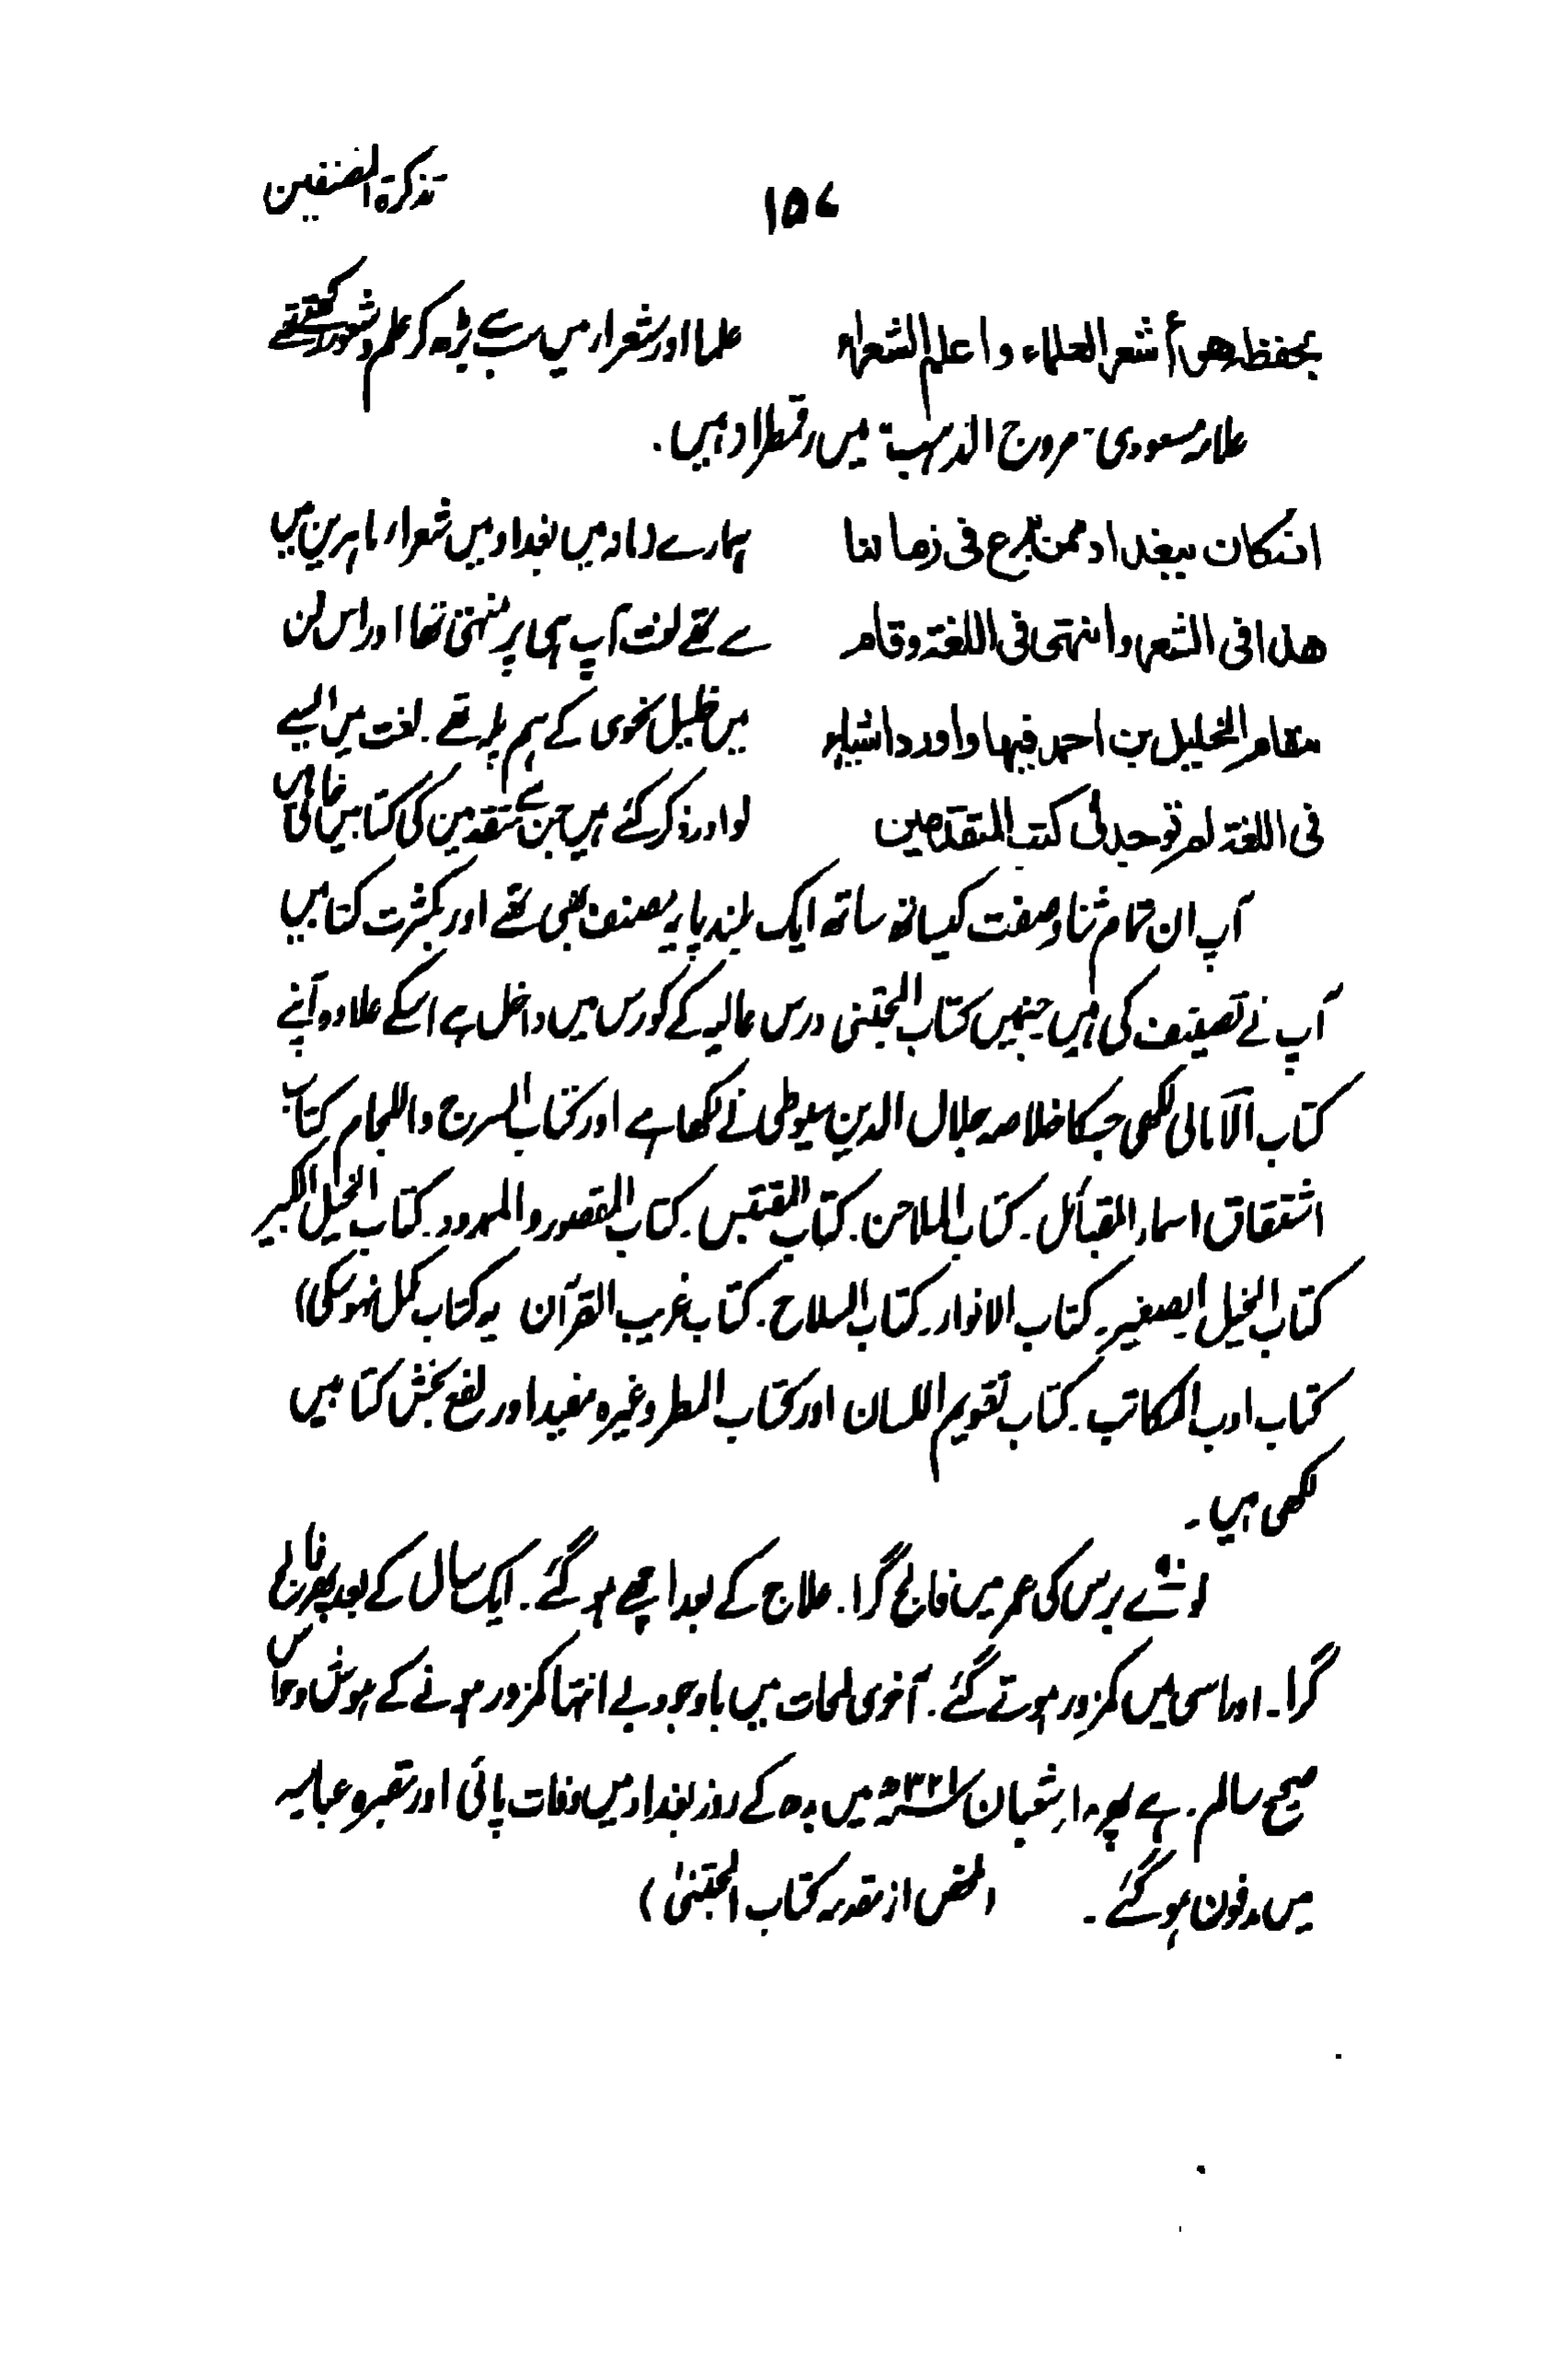 تذکرۃ المصنفین
۱۵۷
بحفظہ هو أشعر العلماء و اعلم الشعراء علما اور شعرار میں سب سے بڑھ کر علم و شعور رکھتے تھے
علامہ مسعودی "مروج الذہب" میں رقمطراز ہیں.
انہ کان ببغداد ممن برع فی زماننا ہمارے زمانہ میں بغداد میں شعرار ماہرین میں
هذا فی الشعر و انتهی فی اللغۃ و قام سے تھے لغت آپ ہی پر منتہی تھا اور اس فن
مقام الخلیل بن احمد فیها و اورد اشیاء میں خلیل نحوی کے ہم پلہ تھے. لغت میں ایسے
فی اللغۃ لم توجد فی کتب المتقدمین نوادر ذکر کئے ہیں جن سے متقدمین کی کتابیں خالی ہیں
آپ ان تمام ثنا و صفت کیساتھ ساتھ ایک بلند پایہ مصنف بھی تھے اور بکثرت کتابیں
آپ نے تصنیف کی ہیں جنہیں کتاب المجتنی درس عالیہ کے کورس میں داخل ہے اسکے علاوہ آپنے
کتاب الآمالی لکھی جسکا خلاصہ جلال الدین سیوطی نے لکھا ہے اور کتاب السرج و اللجام کتاب
اشتقاق اسمار القبائل۔ کتاب الملاحن۔ کتاب المقتبس۔ کتاب المقصور و الممدود۔ کتاب الخیل الکبیر
کتاب الخیل الصغیر۔ کتاب الانوار۔ کتاب السلاح۔ کتاب غریب القرآن یہ کتاب مکمل نہو سکی)
کتاب ادب الکاتب۔ کتاب تقویم اللسان اور کتاب المطر وغیرہ مفید اور نفع بخش کتابیں
لکھی ہیں۔
نوٹے برس کی عمر میں فالج گرا. علاج کے بعد اچھے ہو گئے. ایک سال کے بعد پھر فالج
گرا۔ اور اسی میں کمزور ہوتے گئے. آخری لمحات میں باوجود بے انتہا کمزور ہونے کے ہوش و حواس
صحیح سالم رہے پھر ۱۸ شعبان ۳۲۱ھ میں بدھ کے روز بغداد میں وفات پائی اور مقبرہ عباسیہ
میں مدفون ہو گئے۔ (ملخص از مقدمہ کتاب المجتنیٰ)